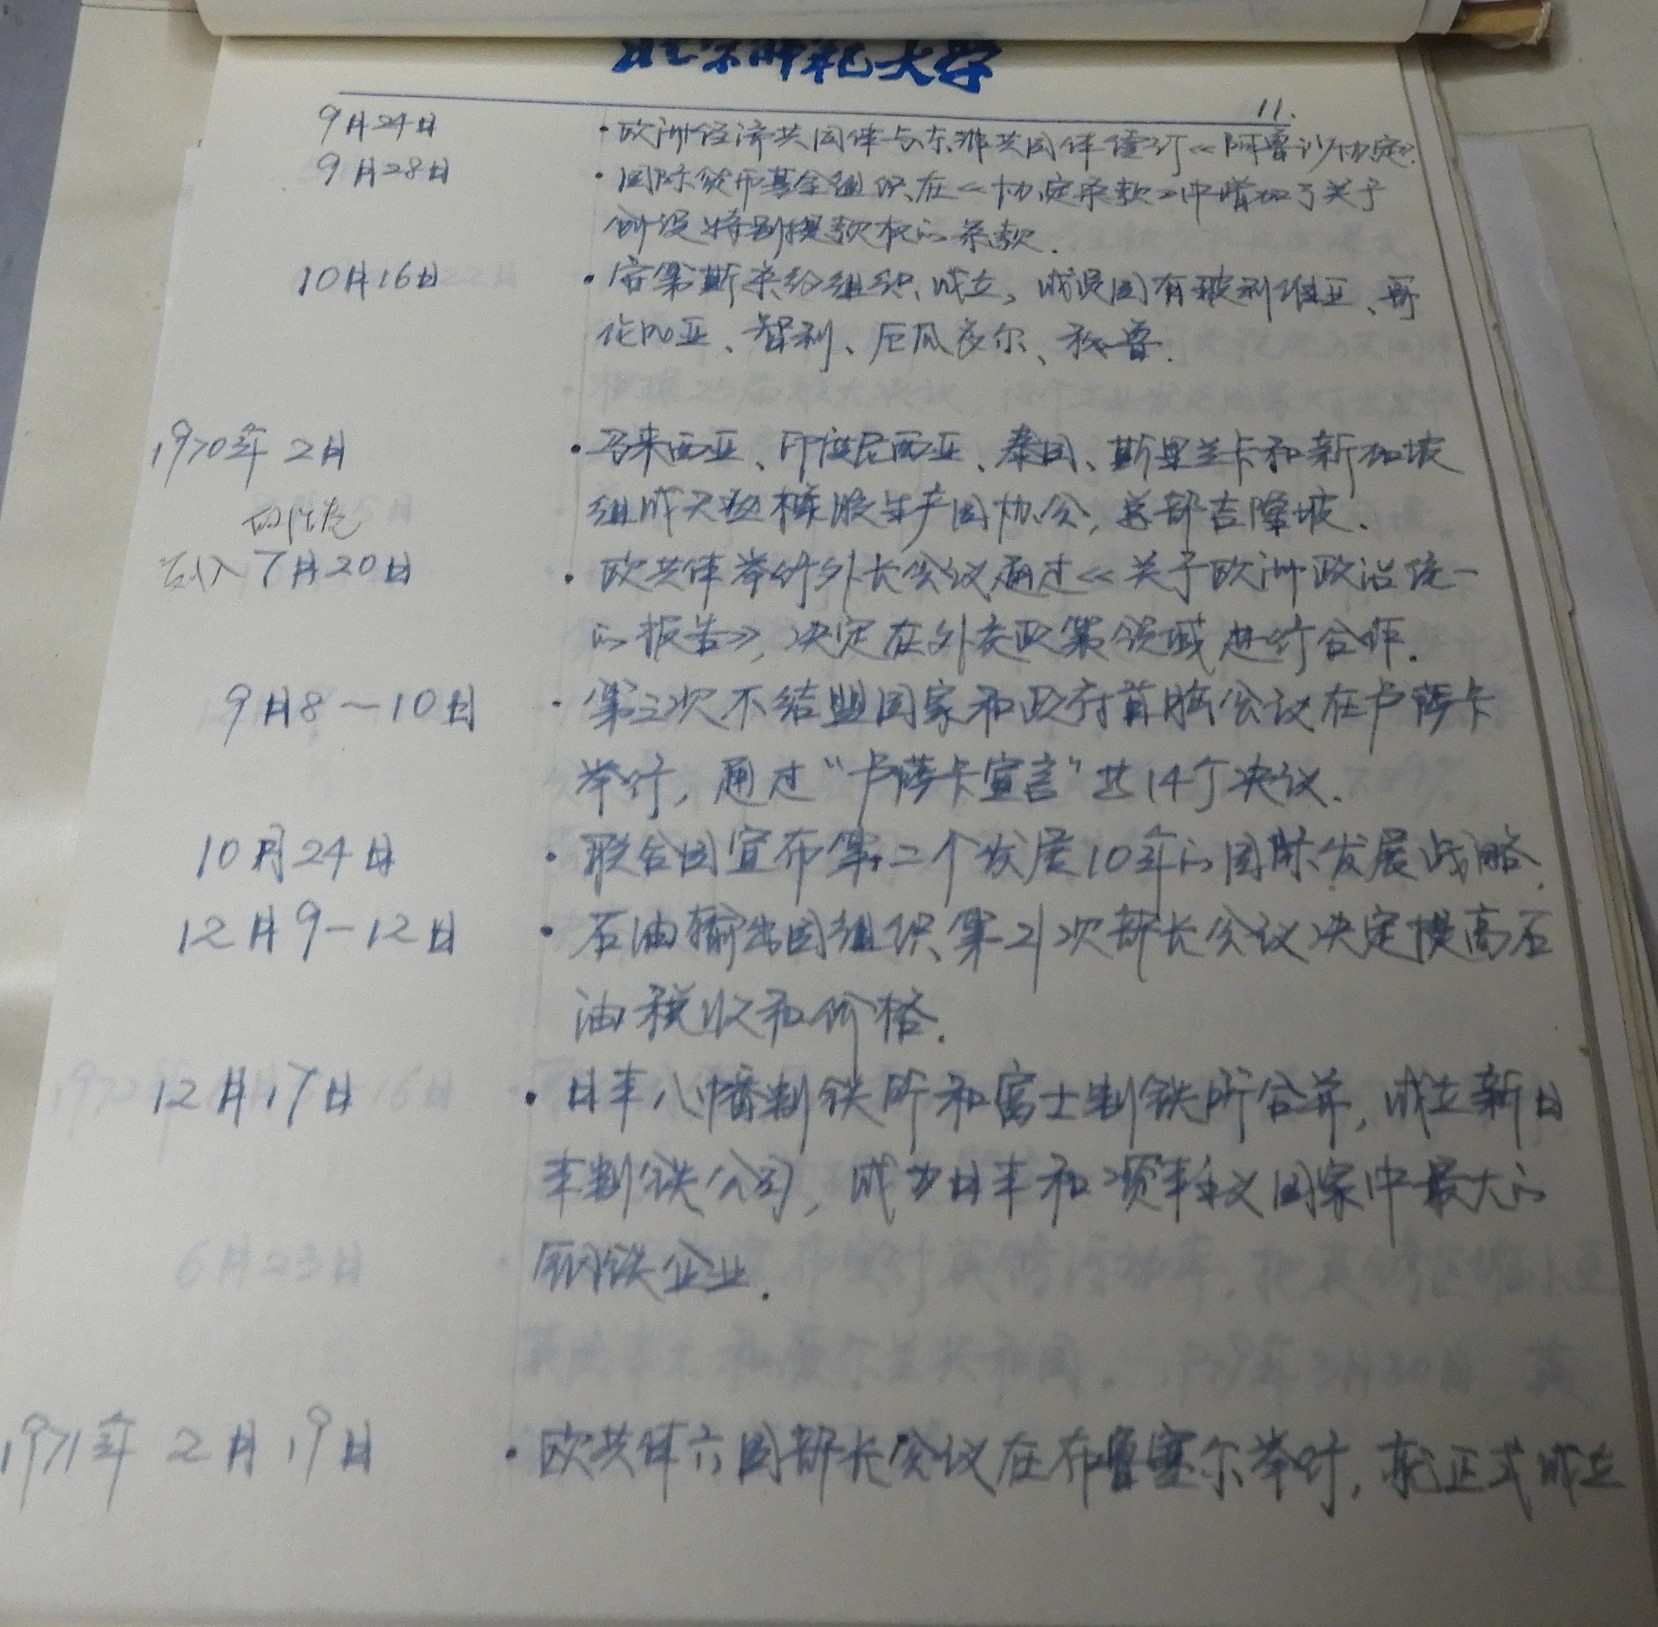 北京师范大学
11.
9月24日 ·欧洲经济共同体与东非共同体签订《阿鲁沙协定》.
9月28日 ·国际货币基金组织在《协定条款》中增加了关于
创设特别提款权的条款.
10月16日 ·安第斯条约组织成立,成员国有玻利维亚、哥
伦比亚、智利、厄瓜多尔、秘鲁.
1970年2月 ·马来西亚、印度尼西亚、泰国、斯里兰卡和新加坡
组成天然橡胶生产国协会,总部吉隆坡.
7月20日 ·欧共体举行外长会议通过《关于欧洲政治统一
的报告》,决定在外交政策领域进行合作.
9月8~10日 ·第三次不结盟国家和政府首脑会议在卢萨卡
举行,通过“卢萨卡宣言”共14个决议.
10月24日 ·联合国宣布第二个发展10年的国际发展战略.
12月9-12日 ·石油输出国组织第21次部长会议决定提高石
油税收和价格.
12月17日 ·日本八幡制铁所和富士制铁所合并,成立新日
本制铁公司,成为日本和资本主义国家中最大的
钢铁企业.
1971年2月19日 ·欧共体六国部长会议在布鲁塞尔举行,就正式成立